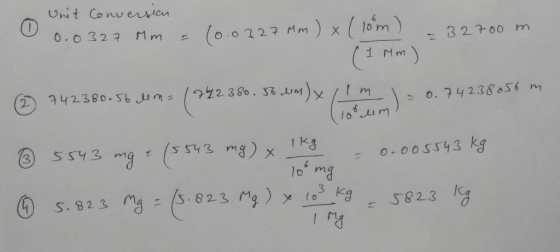 Unit Conversion
① 0.0327 Mm = (0.0327 Mm) × (10⁶m / (1 Mm)) = 32700 m
② 742380.56 um = (742380.56 um) × (1 m / 10⁶ um) = 0.74238056 m
③ 5543 mg = (5543 mg) × 1kg / 10⁶ mg = 0.005543 kg
④ 5.823 Mg = (5.823 Mg) × 10³ kg / 1 Mg = 5823 kg